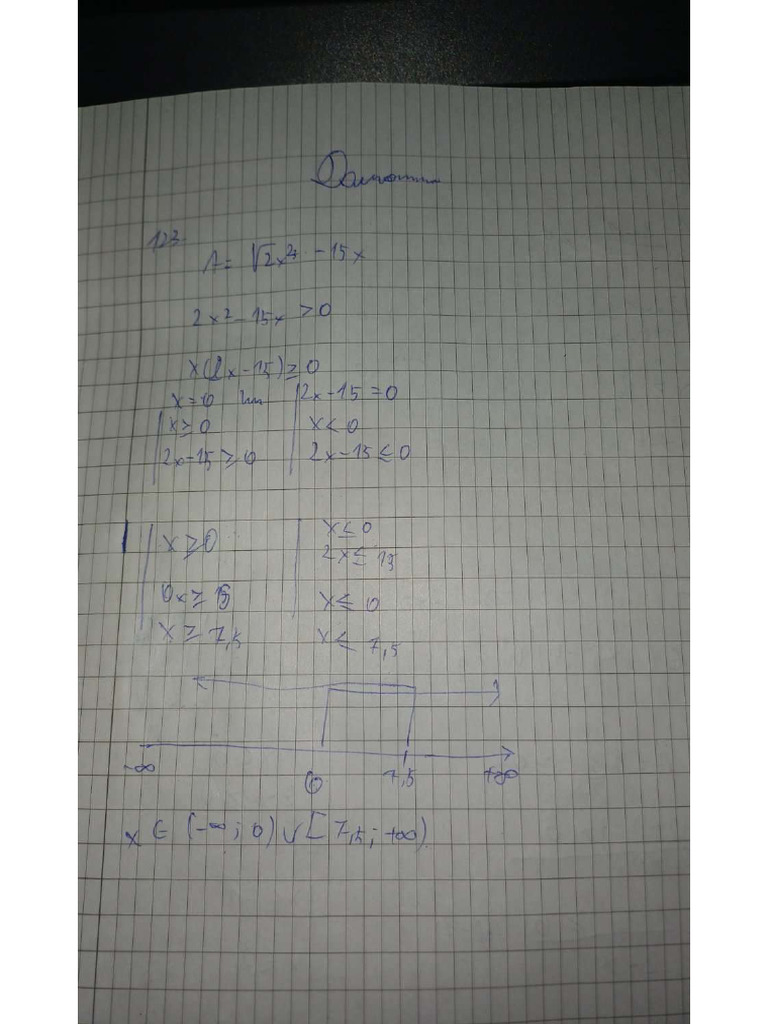 123.
A = √2x² - 15x
2x² - 15x > 0
x(2x - 15) ≥ 0
x = 0 2x - 15 = 0
x ≥ 0 x < 0
2x - 15 ≥ 0 2x - 15 ≤ 0
x ≥ 0 x ≤ 0
2x ≤ 15
0x ≥ 15 x ≤ 0
x ≥ 7,5 x ≤ 7,5
-∞ 0 7,5 +∞
x ∈ (-∞; 0) ∪ [7,5; +∞)